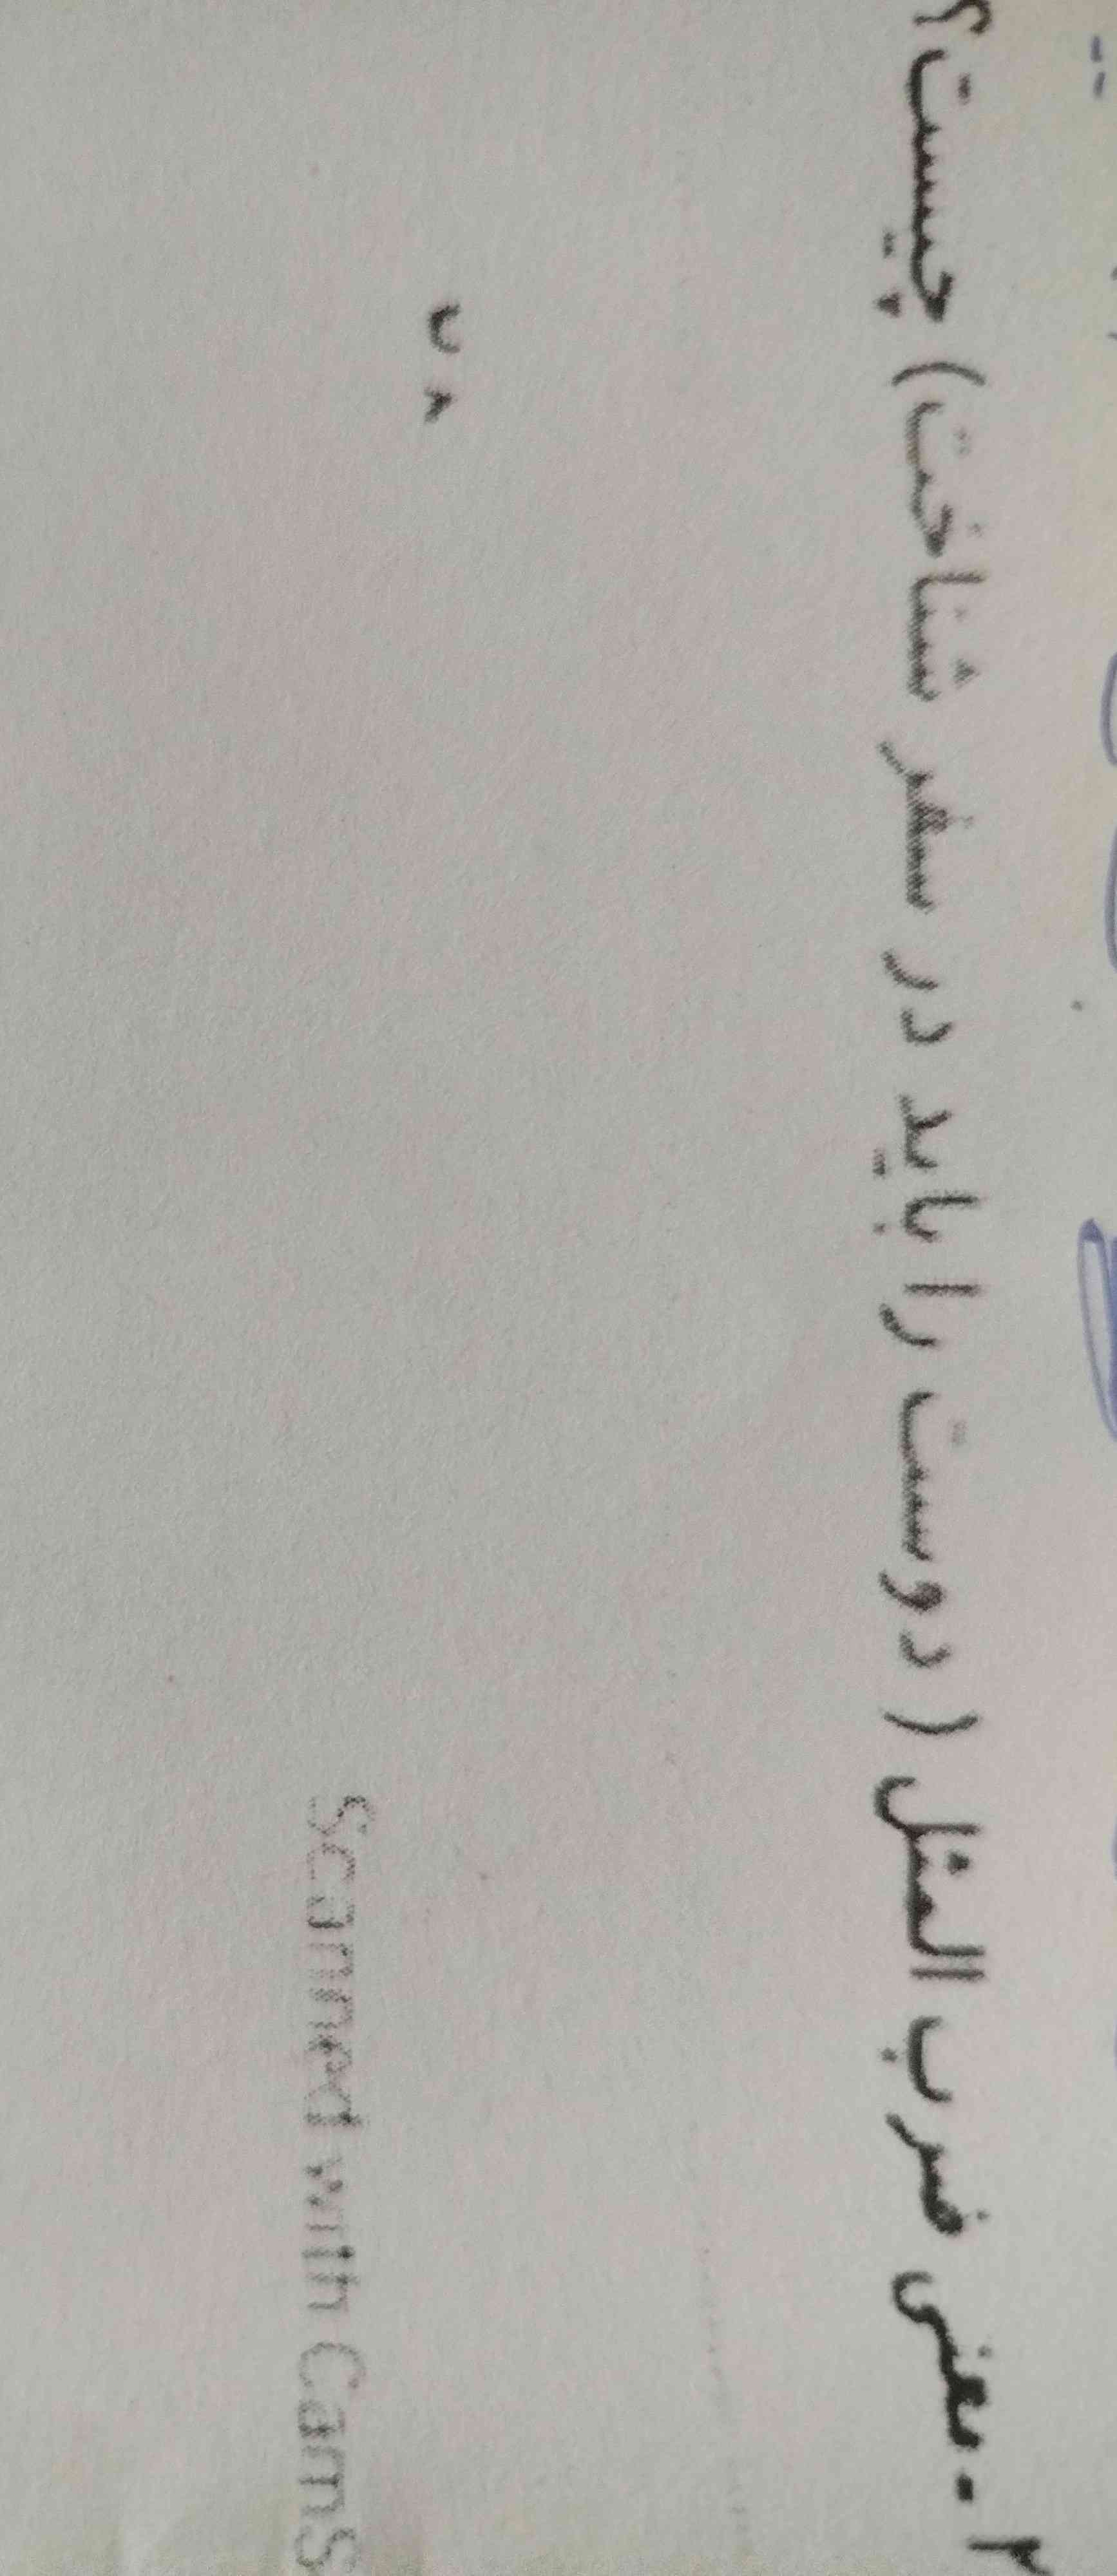 ۲- معنی ضرب المثل ( دوست را باید در سفر شناخت) چیست؟
Scanned with CamS